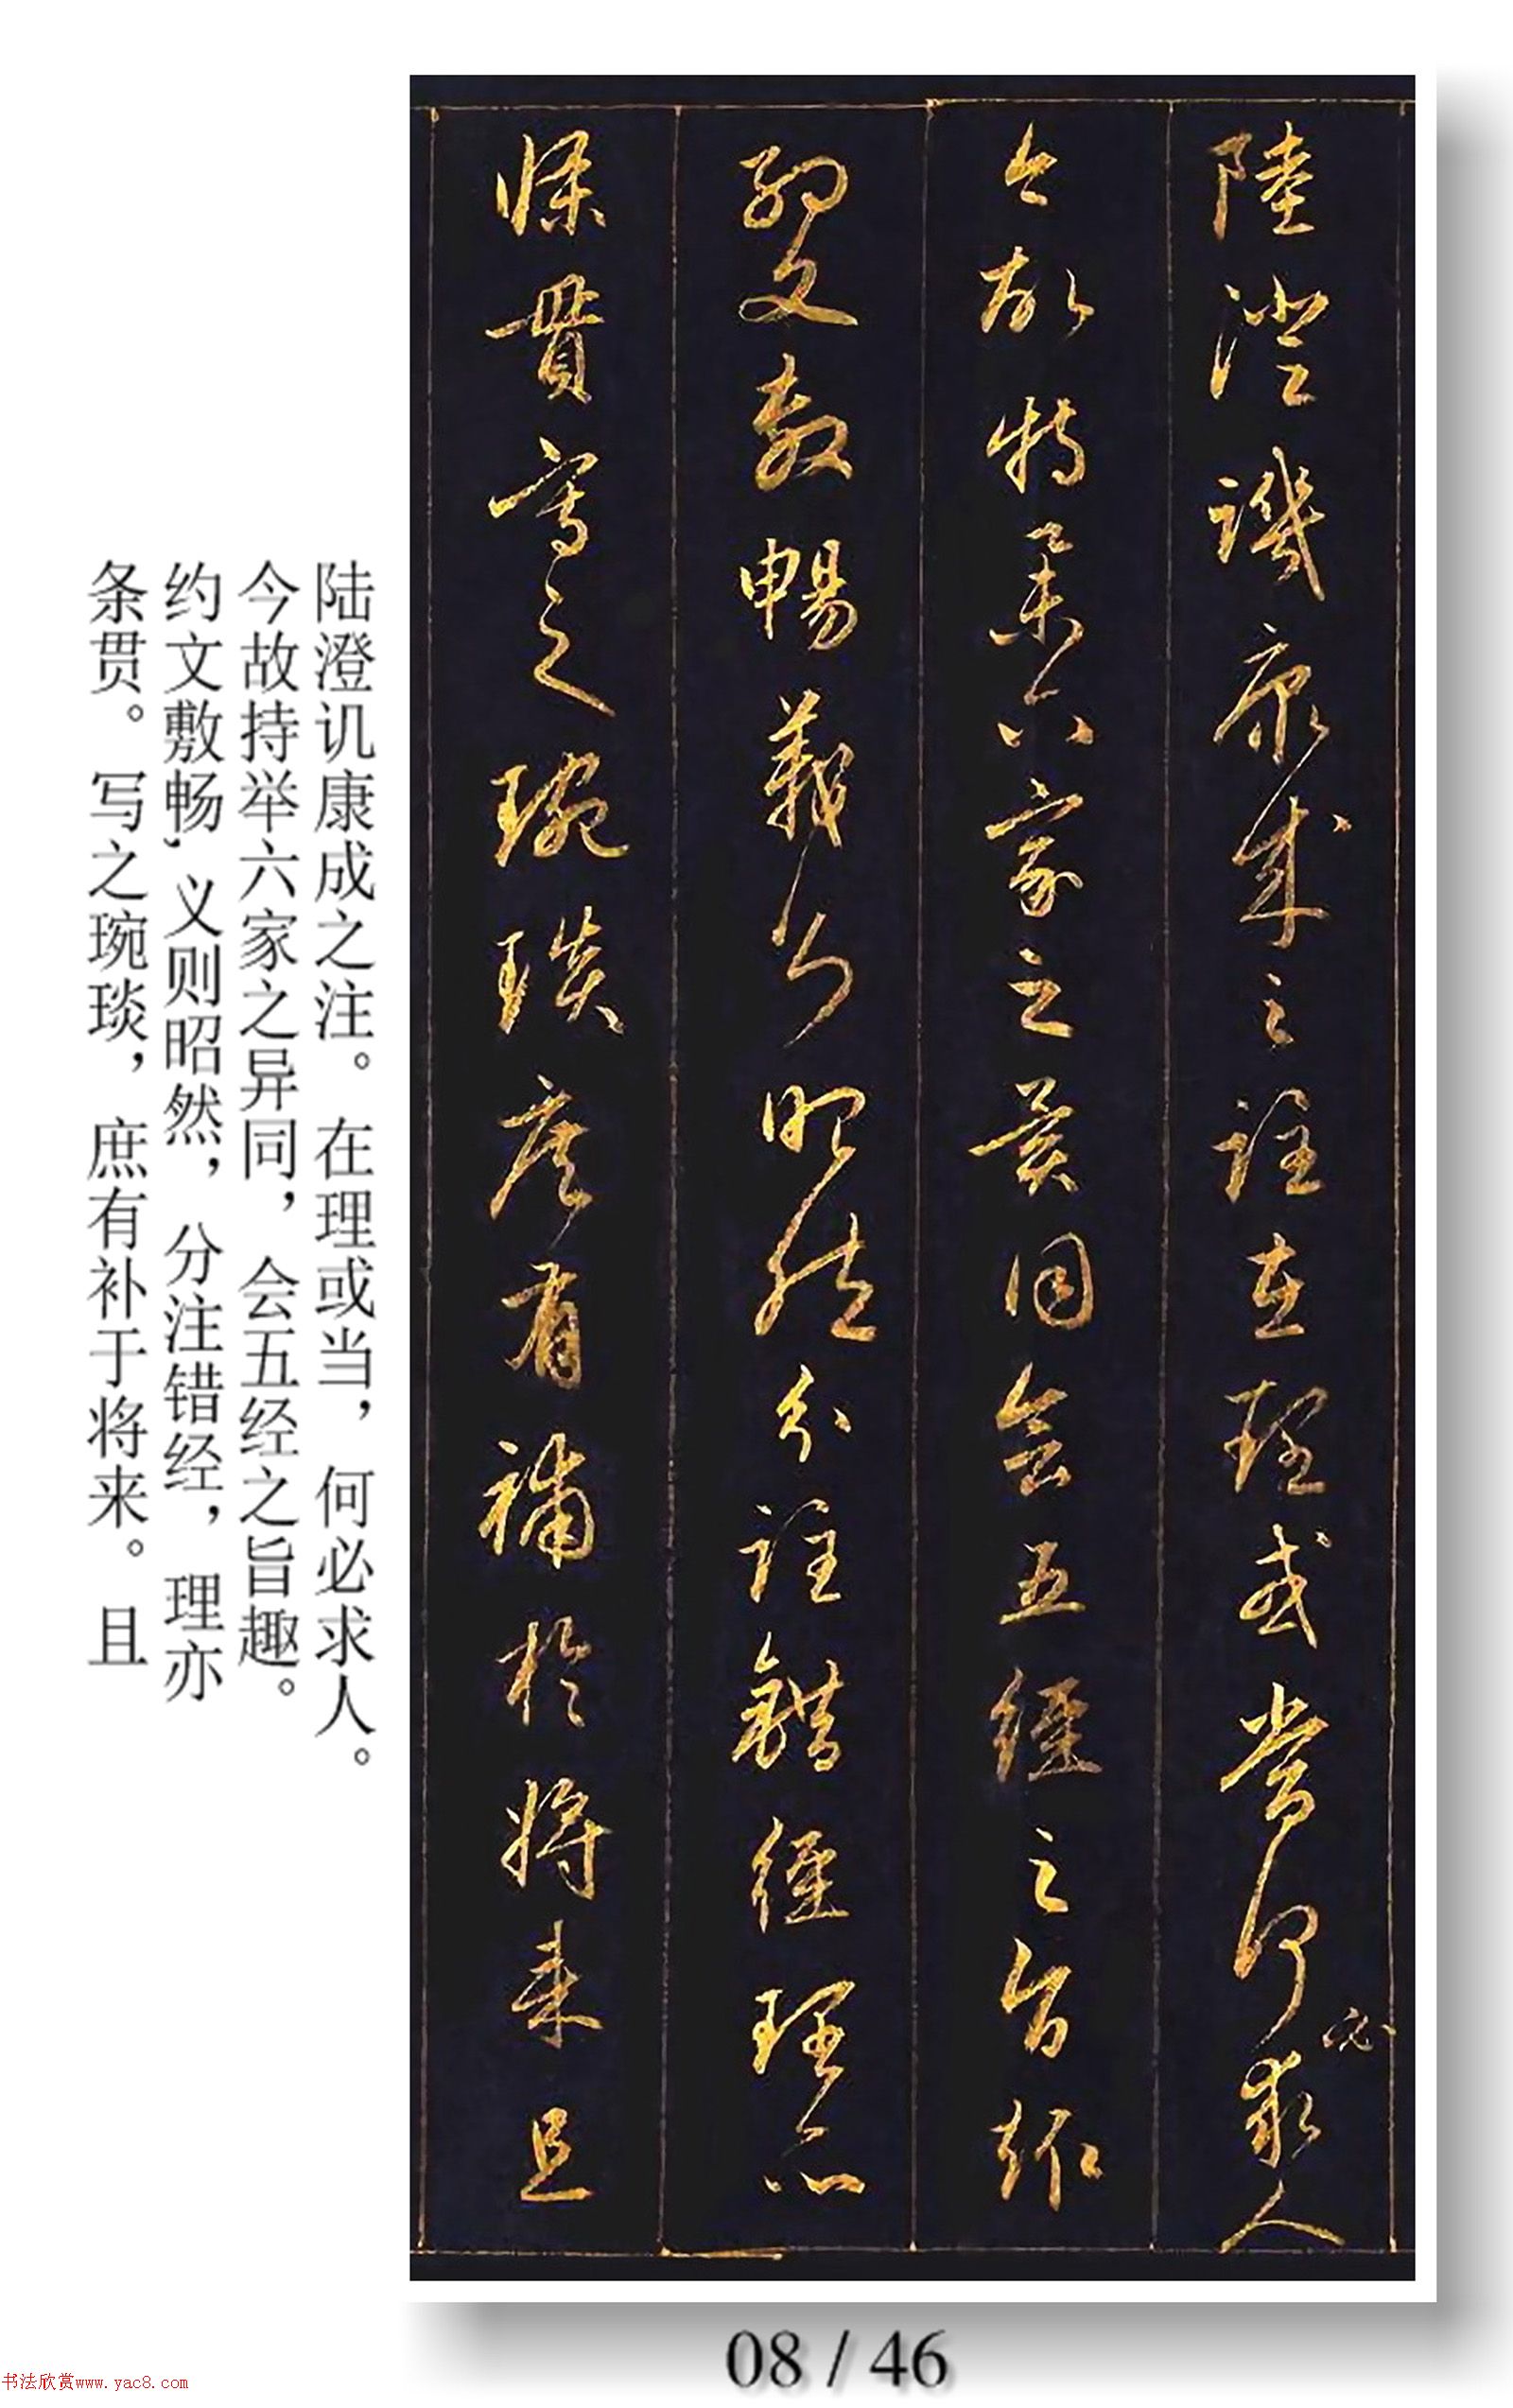 陸澄譏康成之註在理或當何必求人
今故特舉六家之異同會五經之旨趣
約文敷暢義則昭然分註錯經理亦
條貫寫之琬琰庶有補於將来且
陆澄讥康成之注。在理或当，何必求人。
今故持举六家之异同，会五经之旨趣。
约文敷畅，义则昭然，分注错经，理亦
条贯。写之琬琰，庶有补于将来。且
08 / 46
书法欣赏www.yac8.com